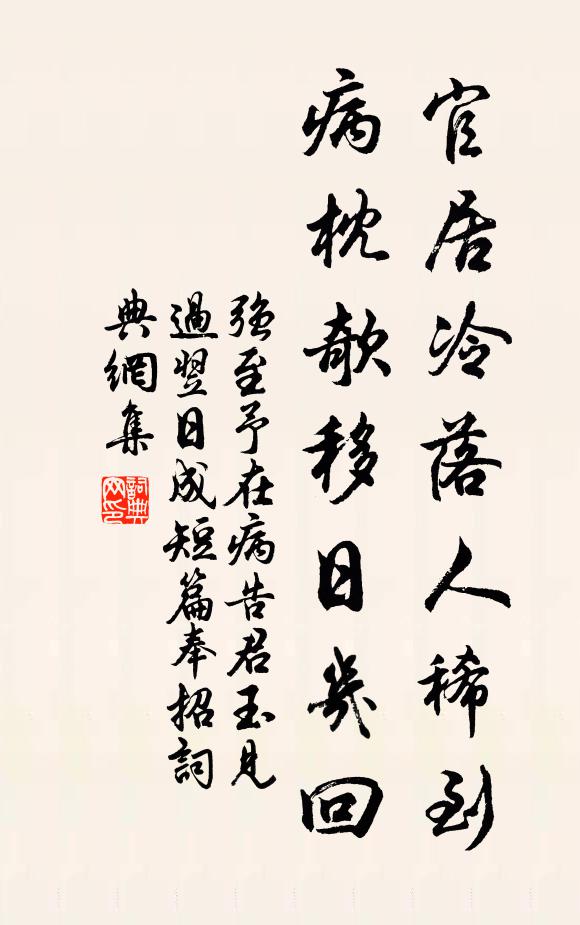 官居冷落人稀到
病枕欹移日幾回
強至予在病告君玉見
過翌日成短篇奉招詞
典網集
詞典网印